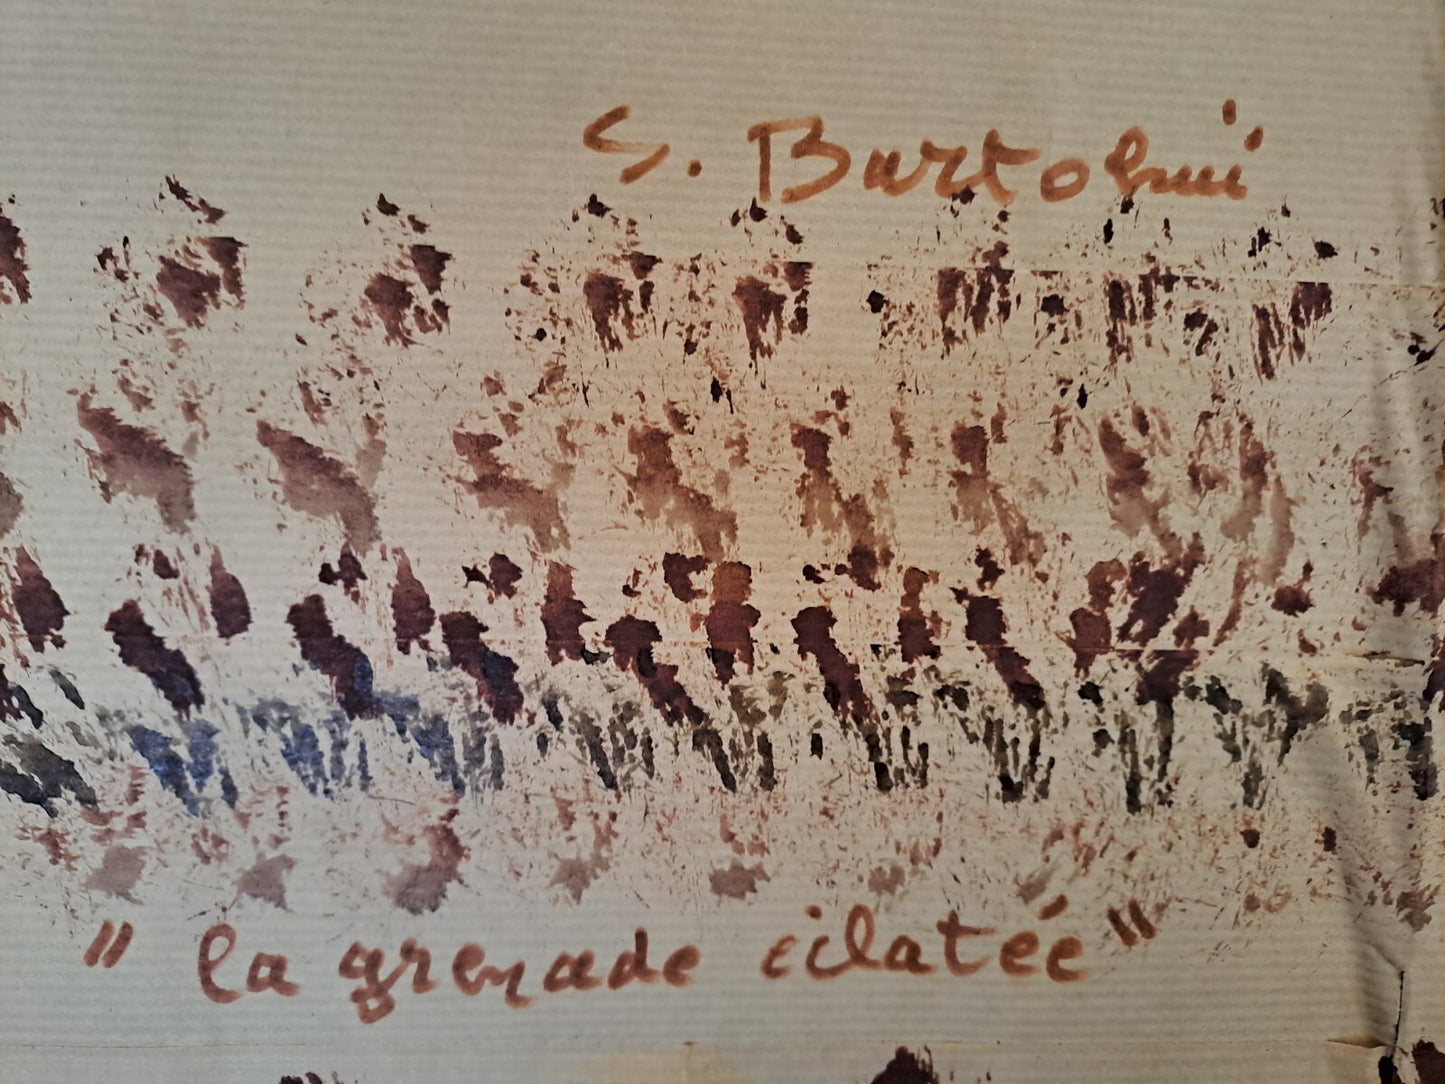 S. Bartolini
"la grenade éclatée"